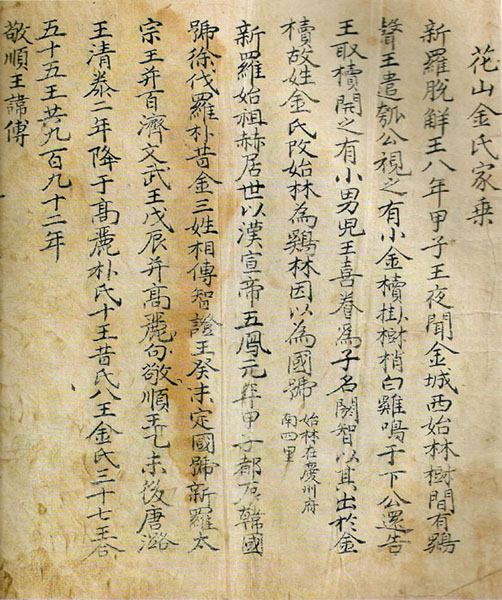 花山金氏家乗
新羅脫解王八年甲子王夜聞金城西始林樹間有鷄
聲王遣瓠公視之有小金櫝掛樹梢白雞鳴于下公還告
王取櫝開之有小男兒王喜養爲子名閼智以其出於金
櫝故姓金氏改始林為鷄林因以為國號
始林在慶州府
南四里
新羅始祖赫居世以漢宣帝五鳳元年甲子都辰韓國
號徐伐羅朴昔金三姓相傳智證王癸未定國號新羅太
宗王并百濟文武王戊辰并高麗句敬順王乙未後唐潞
王清泰二年降于高麗朴氏十王昔氏八王金氏三十七王合
五十五王共九百九十二年
敬順王諱傅